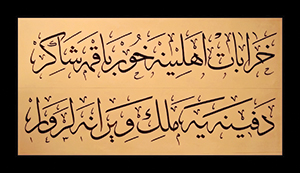 خرابات اهلينه خور باقمه شاكر
دفينه يه مالك ويرانه لر وار